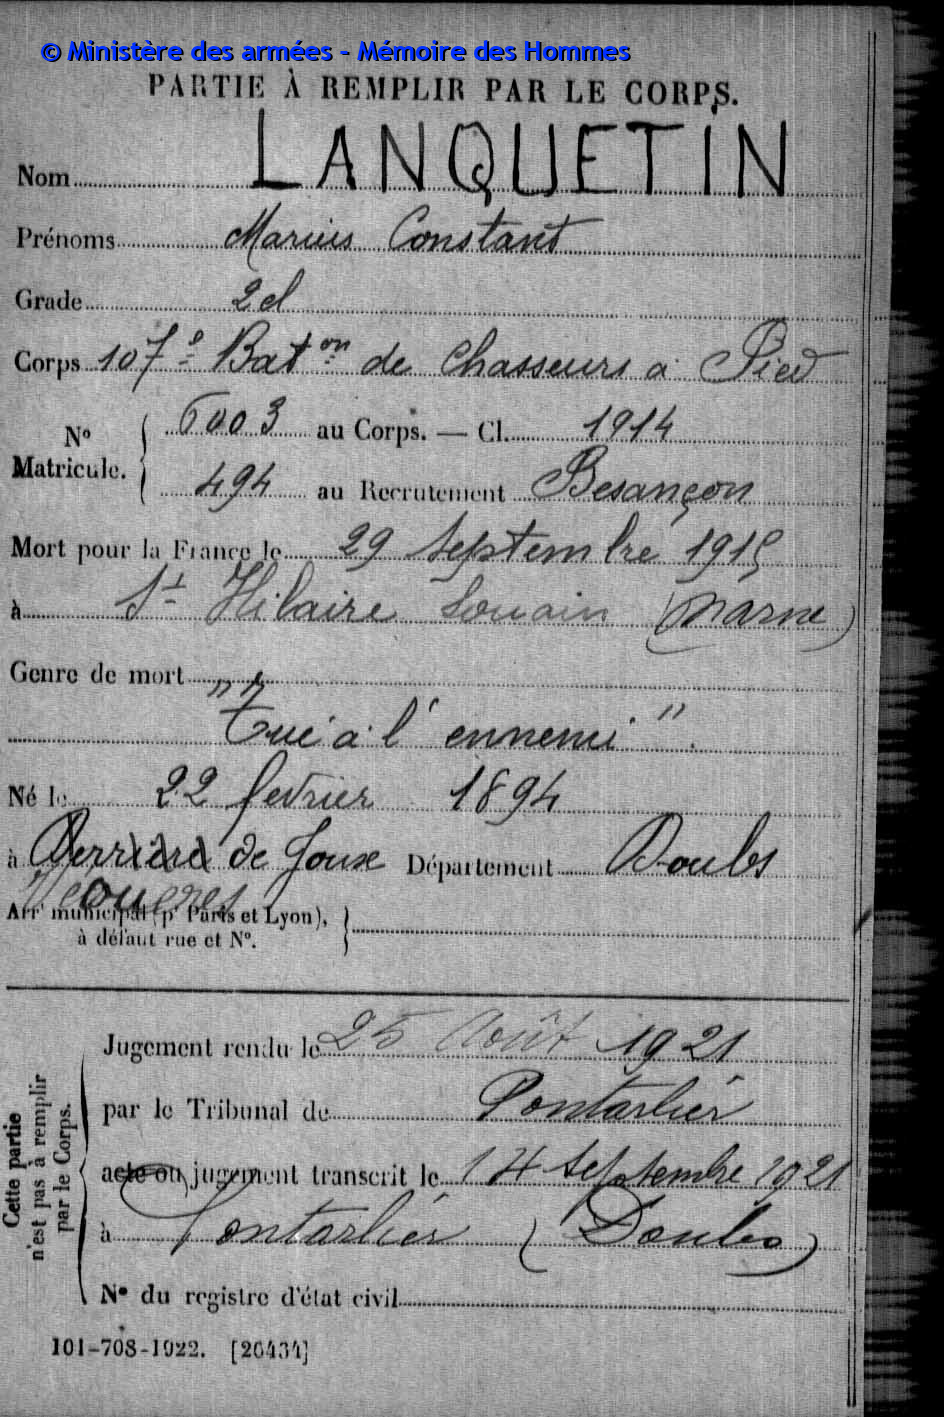 © Ministère des armées - Mémoire des Hommes
PARTIE À REMPLIR PAR LE CORPS.
Nom LANQUETIN
Prénoms Marius Constant
Grade 2cl
Corps 107e Baton de Chasseurs à Pied
No Matricule. 6003 au Corps. — Cl. 1914
494 au Recrutement Besançon
Mort pour la France le 29 Septembre 1915
à St Hilaire Souain (Marne)
Genre de mort
"Tué à l'ennemi".
Né le 22 fevrier 1894
à de Joux Département Doubs
Arrt municipal (pr Paris et Lyon),
à défaut rue et No.
Cette partie n'est pas à remplir par le Corps.
Jugement rendu le 25 Août 1921
par le Tribunal de Pontarlier
acte ou jugement transcrit le 14 Septembre 1921
à Pontarlier (Doubs)
No du registre d'état civil
101-708-1922. [26434]